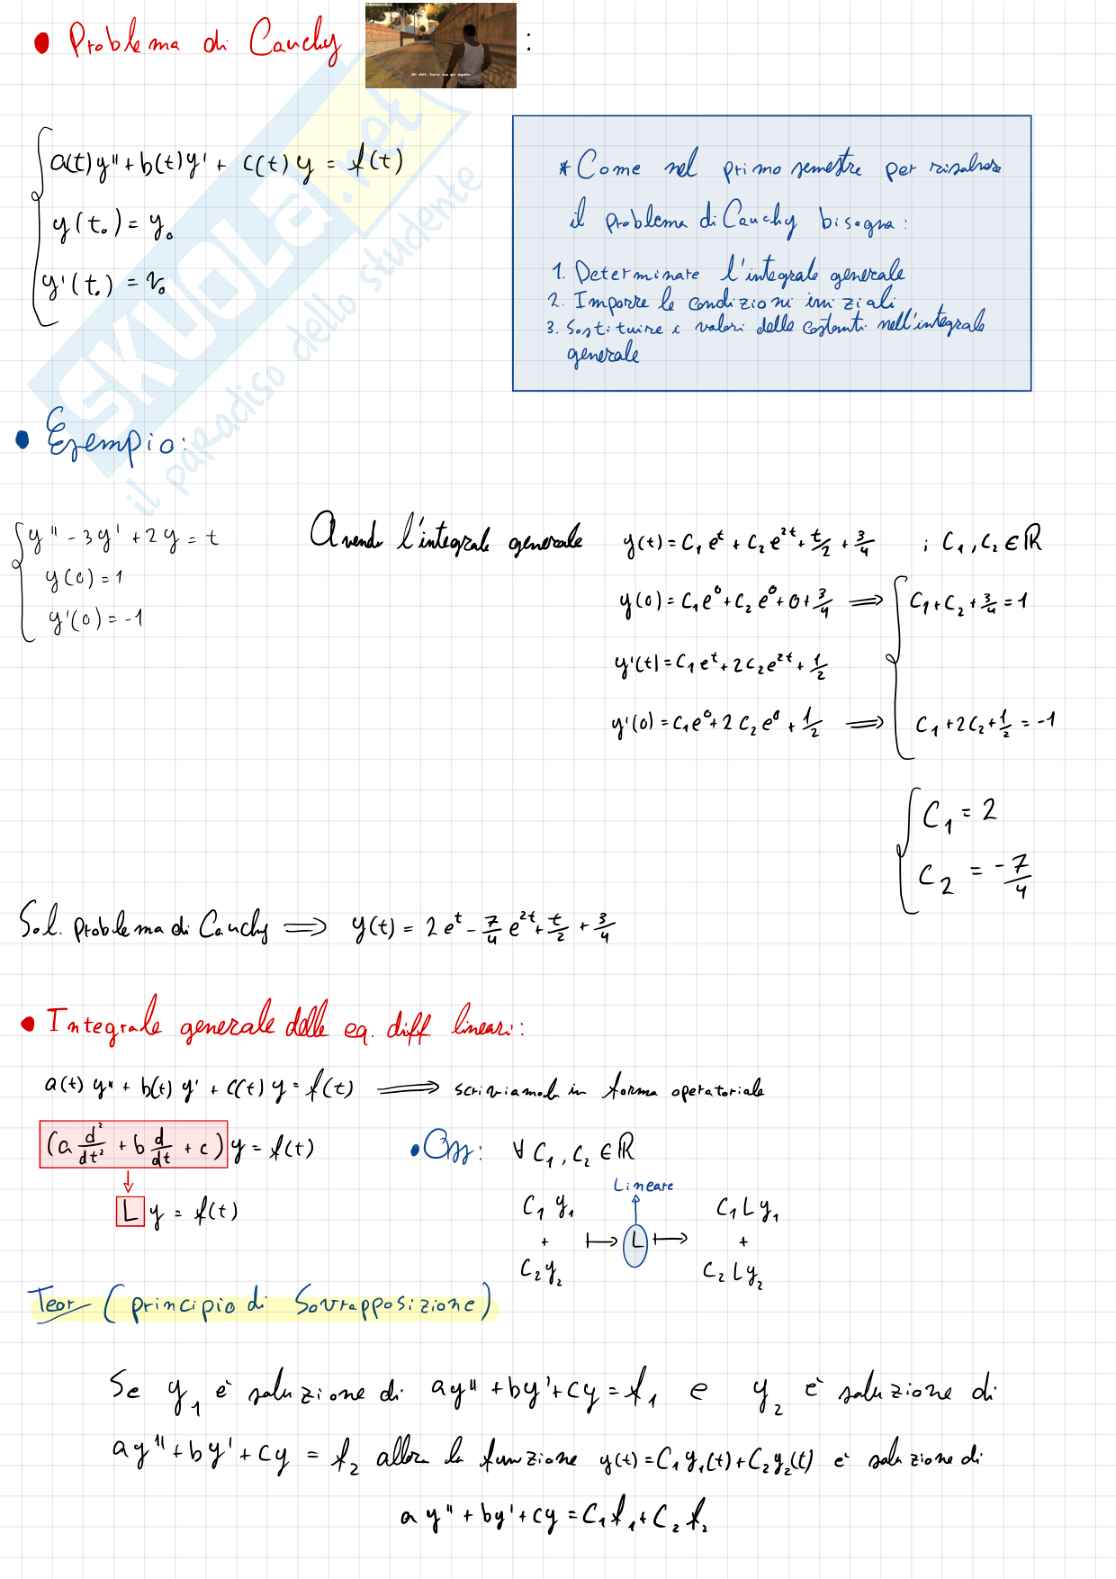 • Problema di Cauchy :
Ah shit, here we go again.
SKUOLA.net
il paradiso dello studente
a(t)y'' + b(t)y' + c(t)y = f(t)
y(t₀) = y₀
y'(t₀) = v₀
* Come nel primo semestre per risolvere
il problema di Cauchy bisogna:
1. Determinare l'integrale generale
2. Imporre le condizioni iniziali
3. Sostituire i valori delle costanti nell'integrale
generale
• Esempio:
y'' - 3y' + 2y = t
y(0) = 1
y'(0) = -1
Avendo l'integrale generale y(t) = C₁ e^t + C₂ e^{2t} + t/2 + 3/4 ; C₁, C₂ ∈ ℝ
y(0) = C₁e⁰ + C₂ e⁰ + 0 + 3/4 ⟹ C₁ + C₂ + 3/4 = 1
y'(t) = C₁e^t + 2C₂e^{2t} + 1/2
y'(0) = C₁e⁰ + 2C₂e⁰ + 1/2 ⟹ C₁ + 2C₂ + 1/2 = -1
C₁ = 2
C₂ = -7/4
Sol. Problema di Cauchy ⟹ y(t) = 2e^t - 7/4 e^{2t} + t/2 + 3/4
• Integrale generale delle eq. diff lineari:
a(t)y'' + b(t)y' + c(t)y = f(t) ⟹ scriviamola in forma operatoriale
(a d²/dt² + b d/dt + c)y = f(t)
• Oss: ∀ C₁, C₂ ∈ ℝ
↓
Ly = f(t)
Lineare
C₁y₁ + C₂y₂ ↦ L ↦ C₁Ly₁ + C₂Ly₂
Teor (principio di Sovrapposizione)
Se y₁ è soluzione di ay'' + by' + cy = f₁ e y₂ è soluzione di
ay'' + by' + cy = f₂ allora la funzione y(t) = C₁y₁(t) + C₂y₂(t) è soluzione di
ay'' + by' + cy = C₁f₁ + C₂f₂